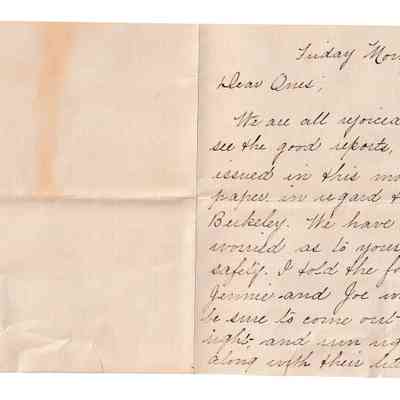 Friday Mor
Dear Ones;
We are all rejoiced
see the good reports,
issued in this mo
paper in regard t
Berkeley. We have
worried as to your
safety. I told the fo
Jennie and Joe w
be sure to come out
right, and run rig
along with their lit